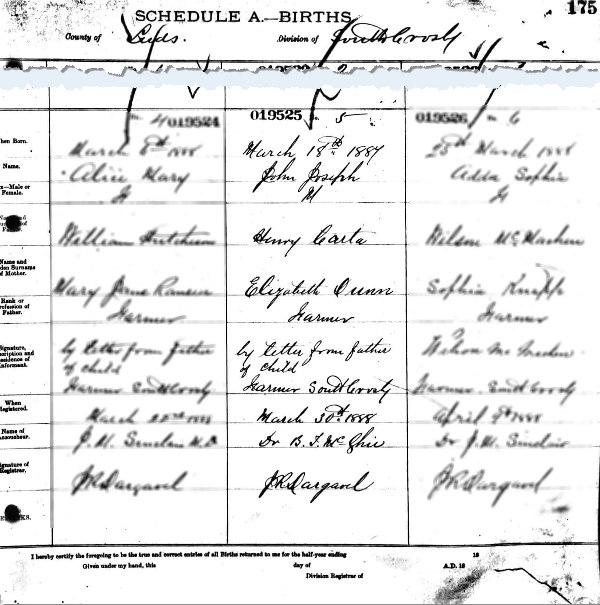 175
SCHEDULE A.—BIRTHS
County of Leeds. Division of South Crosby
4 019524 019525 5 019526 6
hen Born. March 8th 1888 March 18th 1887 25th March 1888
Name. Alice Mary John Joseph Adda Sophia
x—Male or Female. F M F
William Henry Carta Wilson
Name and den Surname of Mother. Mary Jane Elizabeth Dunn Sophia Knapp
Rank or rofession of Father. Farmer Farmer Farmer
Signature, scription and esidence of Informant. by letter from father by letter from father Wilson
of child of child
Farmer South Crosby Farmer South Crosby Farmer South Crosby
When Registered. March 22nd 1888 March 30th 1888 April 9th 1888
Name of Accoucheur. J. M. Sinclair M.D Dr B. F. McGhie Dr J. M. Sinclair
ignature of Registrar. JR Dargavel JR Dargavel JR Dargavel
KS.
I hereby certify the foregoing to be the true and correct entries of all Births returned to me for the half-year ending 18
Given under my hand, this day of A.D. 18
Division Registrar of